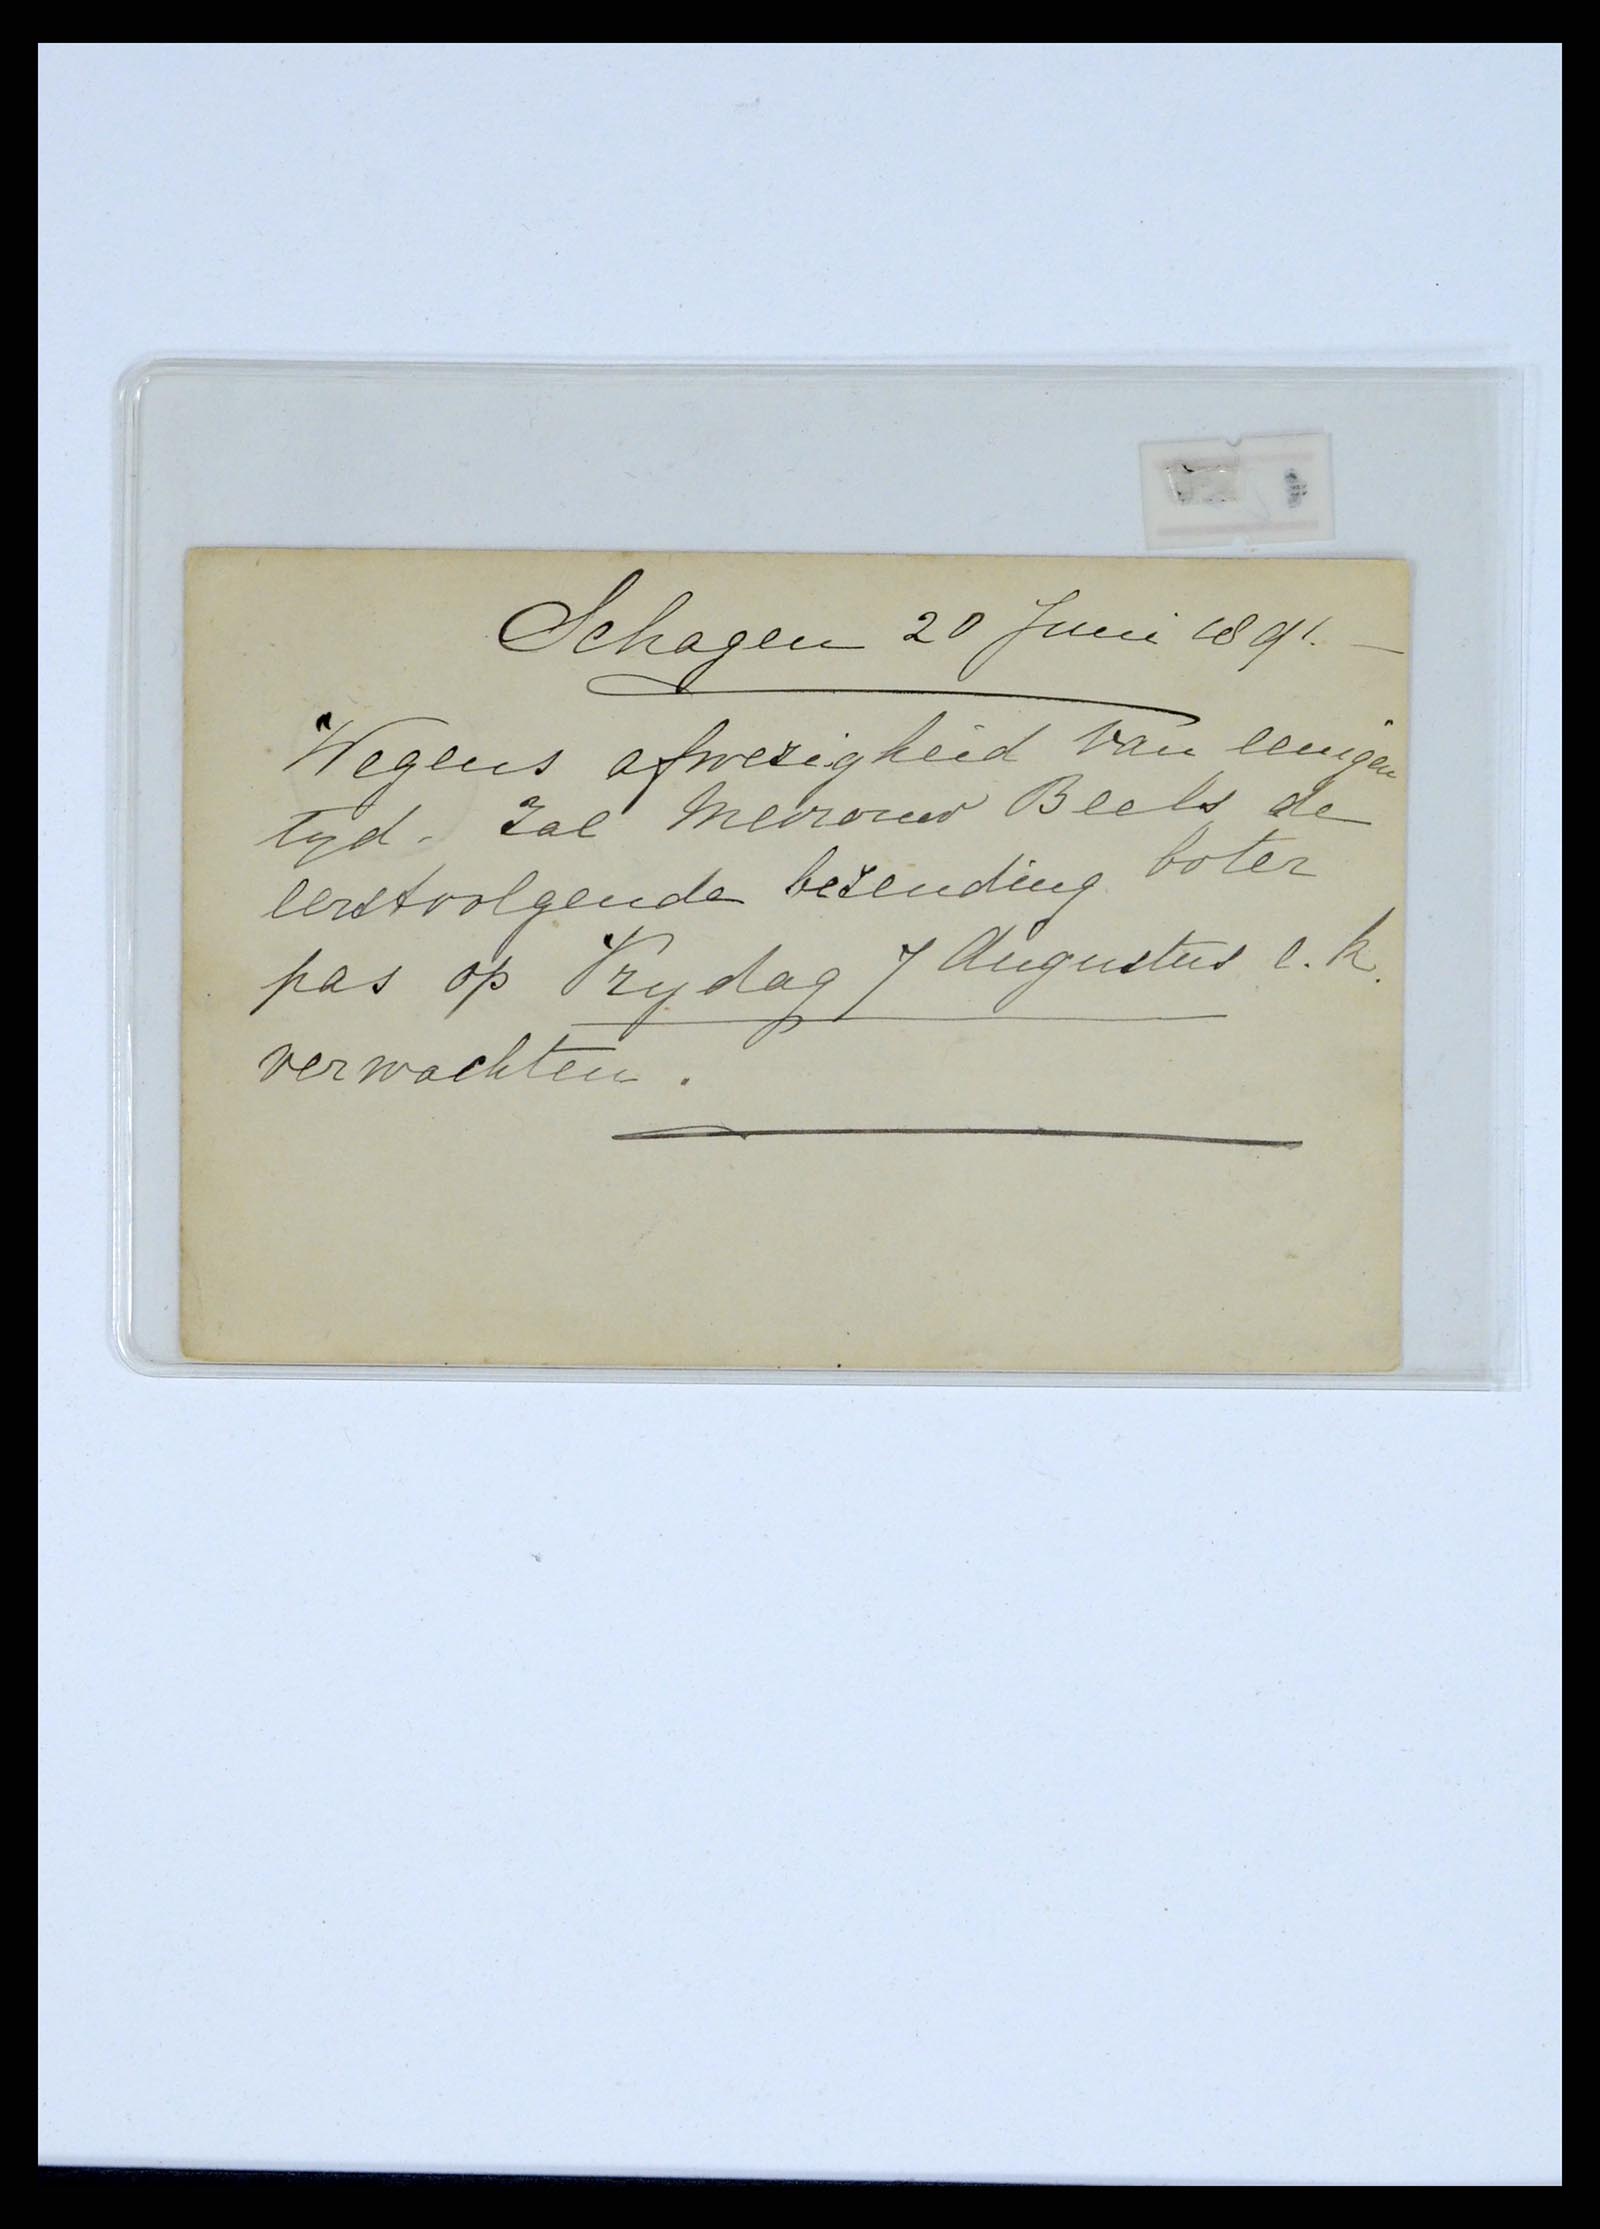 Schagen 20 Juni 1891. —
Wegens afwezigheid van eenigen
tyd. Zal Mevrouw Beels de
eerstvolgende bezending boter
pas op Vrydag 7 Augustus e.k.
verwachten.